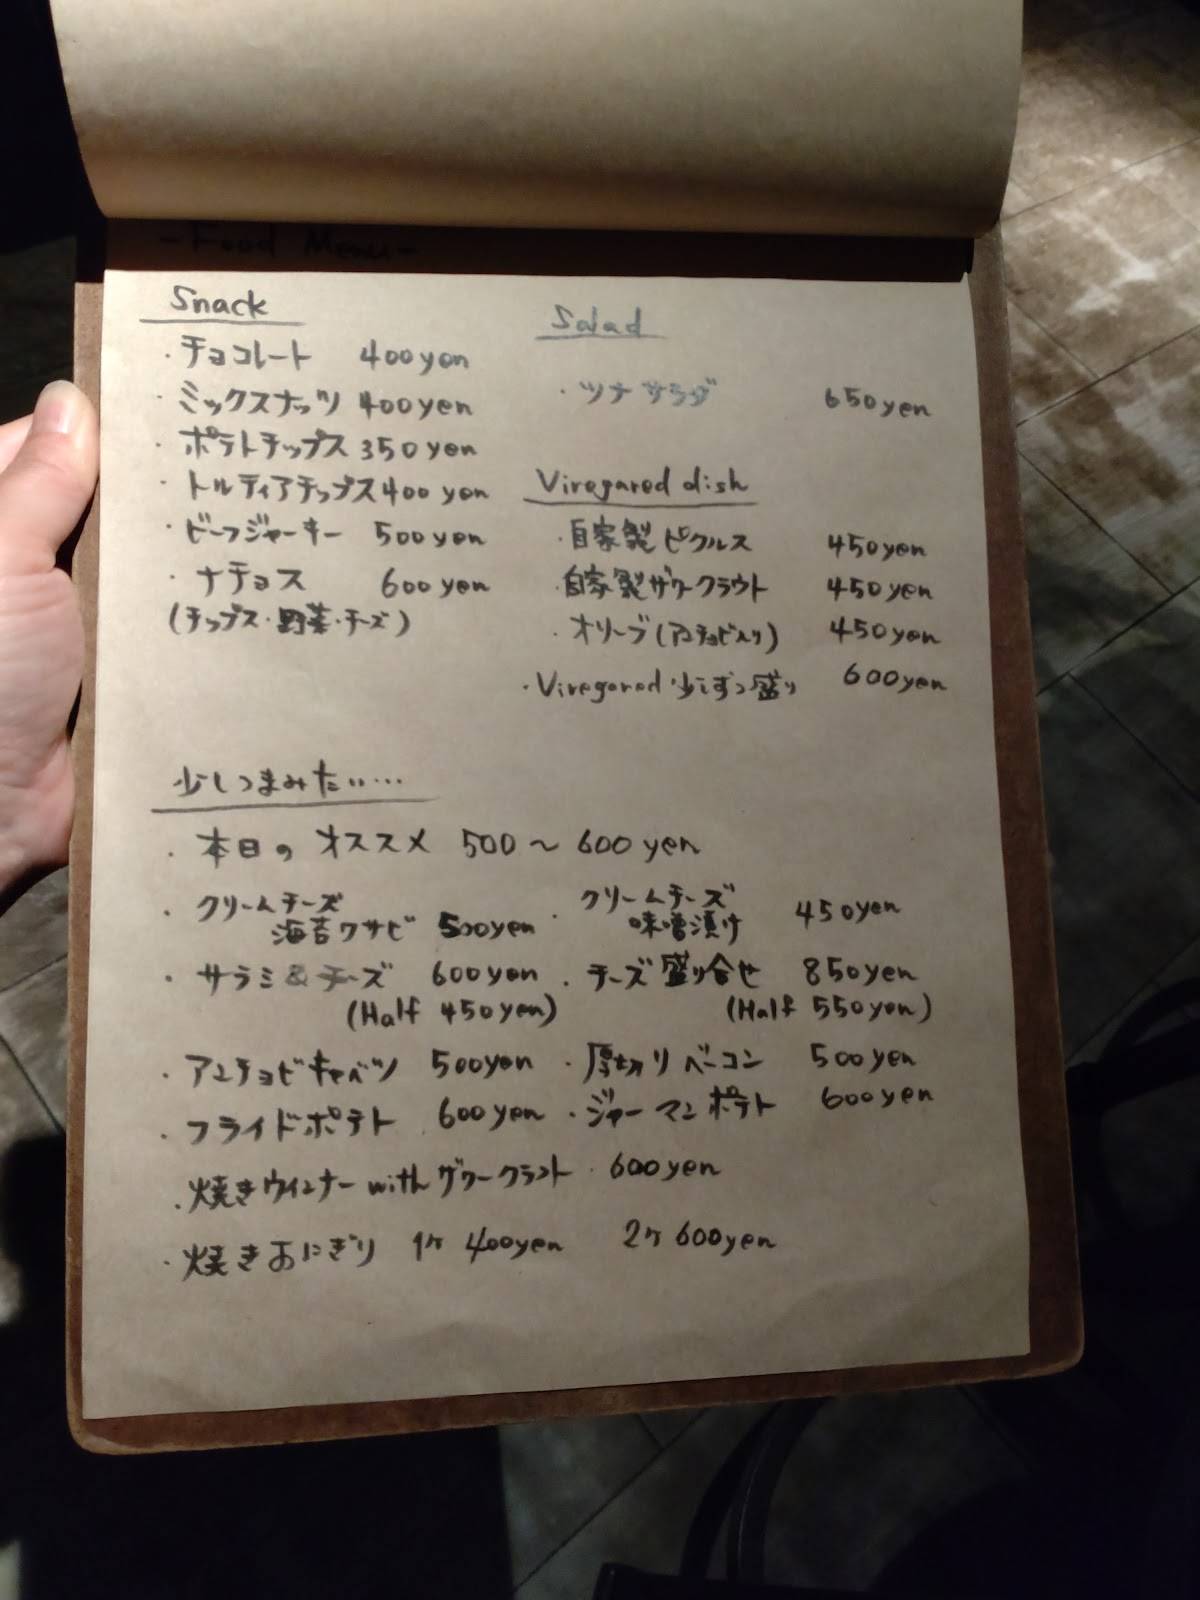 -Food Menu-
Snack
・チョコレート 400yen
・ミックスナッツ 400yen
・ポテトチップス 350yen
・トルティアチップス 400yen
・ビーフジャーキー 500yen
・ナチョス 600yen
(チップス・野菜・チーズ)
Salad
・ツナサラダ 650yen
Viregared dish
・自家製ピクルス 450yen
・自家製ザワークラウト 450yen
・オリーブ(アンチョビ入り) 450yen
・Viregared 少しずつ盛り 600yen
少しつまみたい…
・本日のオススメ 500〜600yen
・クリームチーズ
海苔ワサビ 500yen
・クリームチーズ
味噌漬け 450yen
・サラミ&チーズ 600yen
(Half 450yen)
・チーズ盛り合せ 850yen
(Half 550yen)
・アンチョビキャベツ 500yen
・厚切りベーコン 500yen
・フライドポテト 600yen
・ジャーマンポテト 600yen
・焼きウインナー with ザワークラウト・600yen
・焼きおにぎり 1ヶ 400yen 2ヶ 600yen